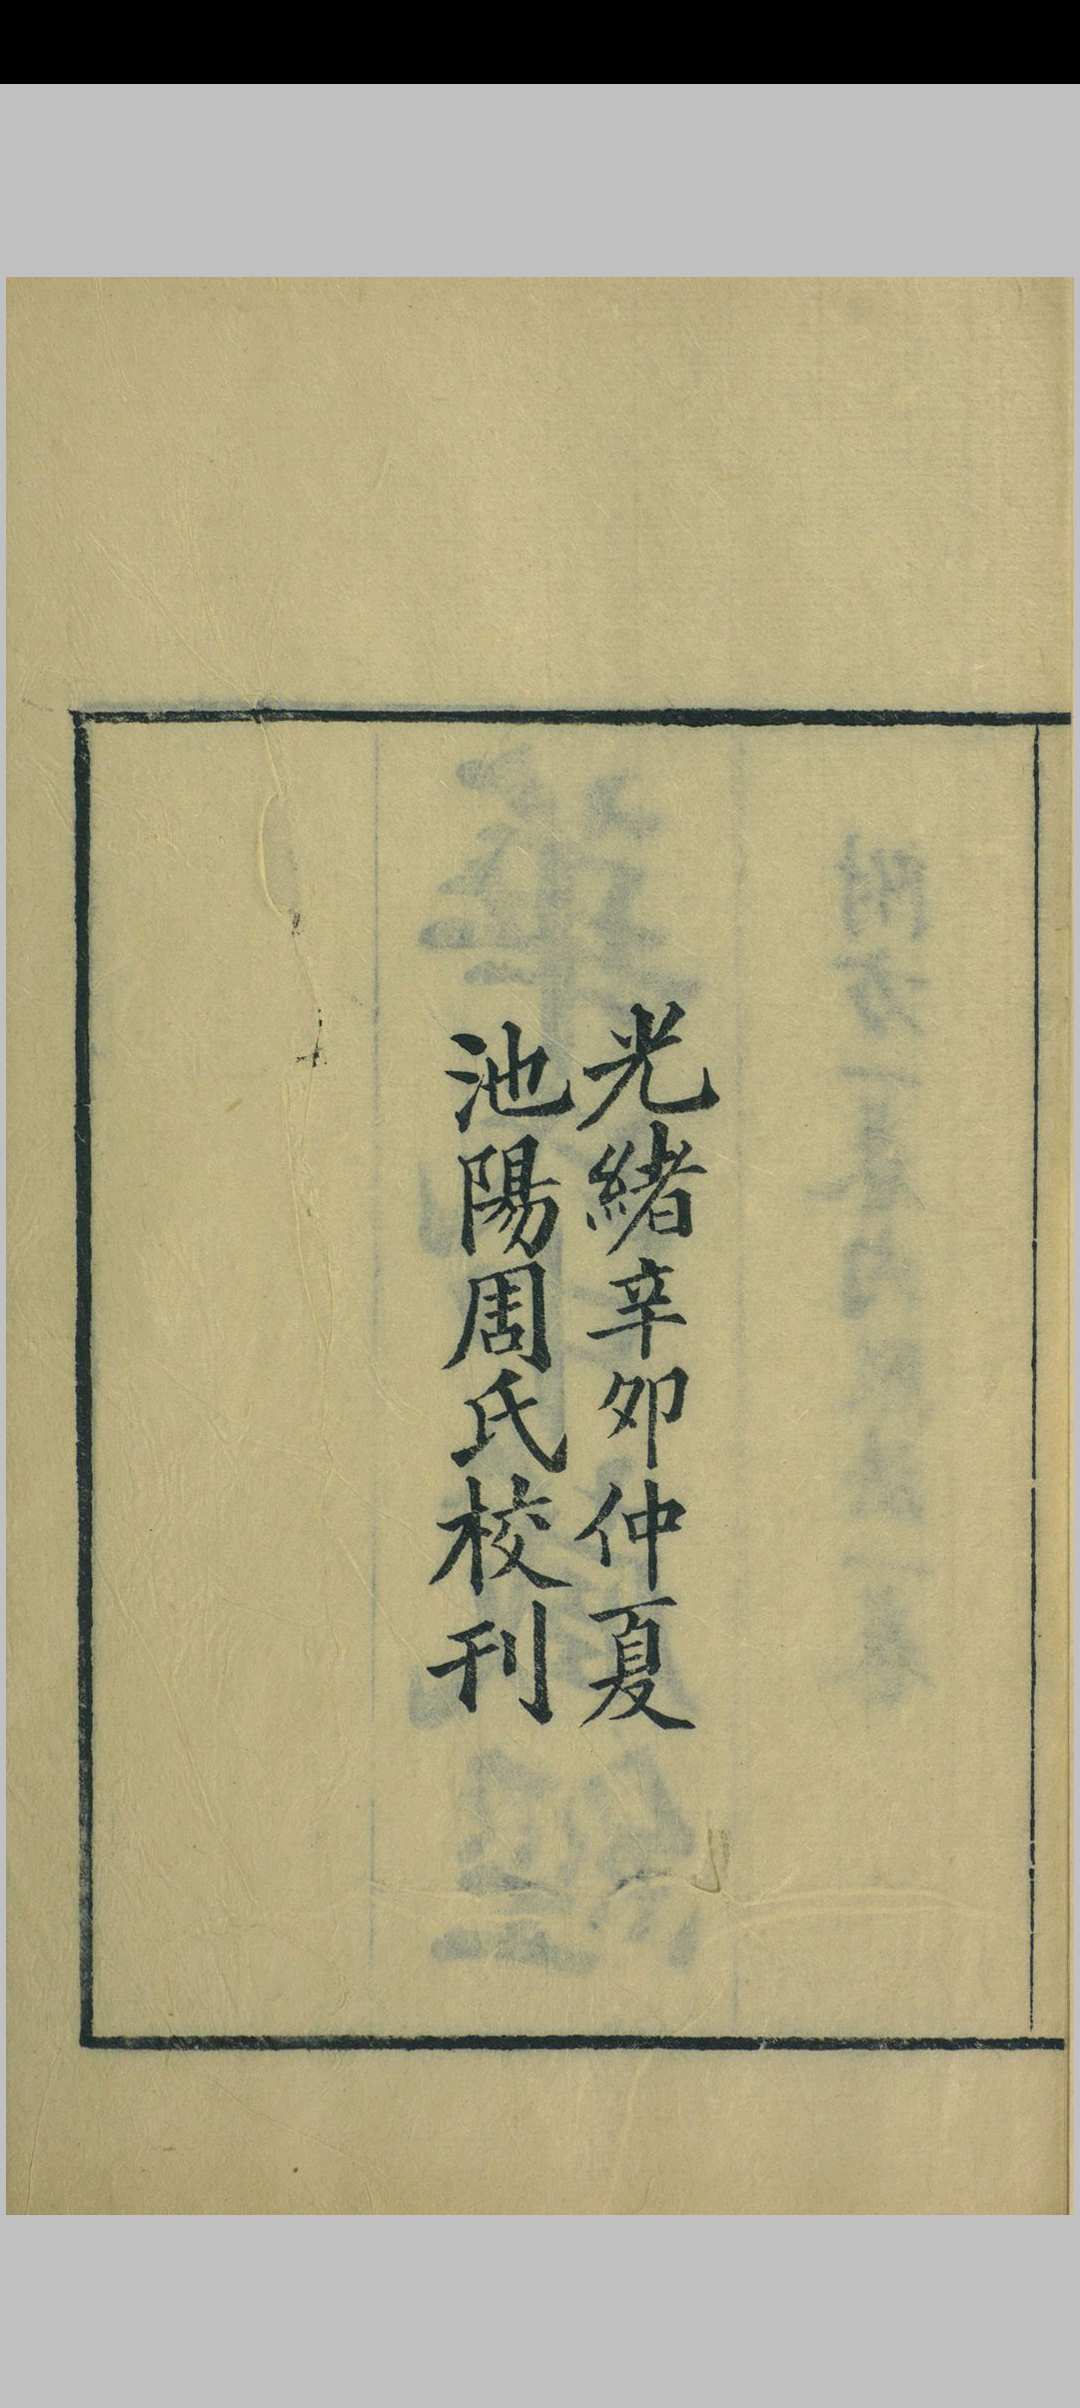 光緒辛卯仲夏
池陽周氏校刊